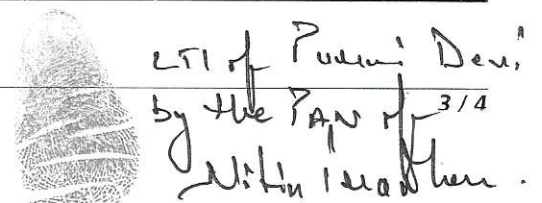 LTI of Puruni Devi
by the PAN of
3/4
Nitin